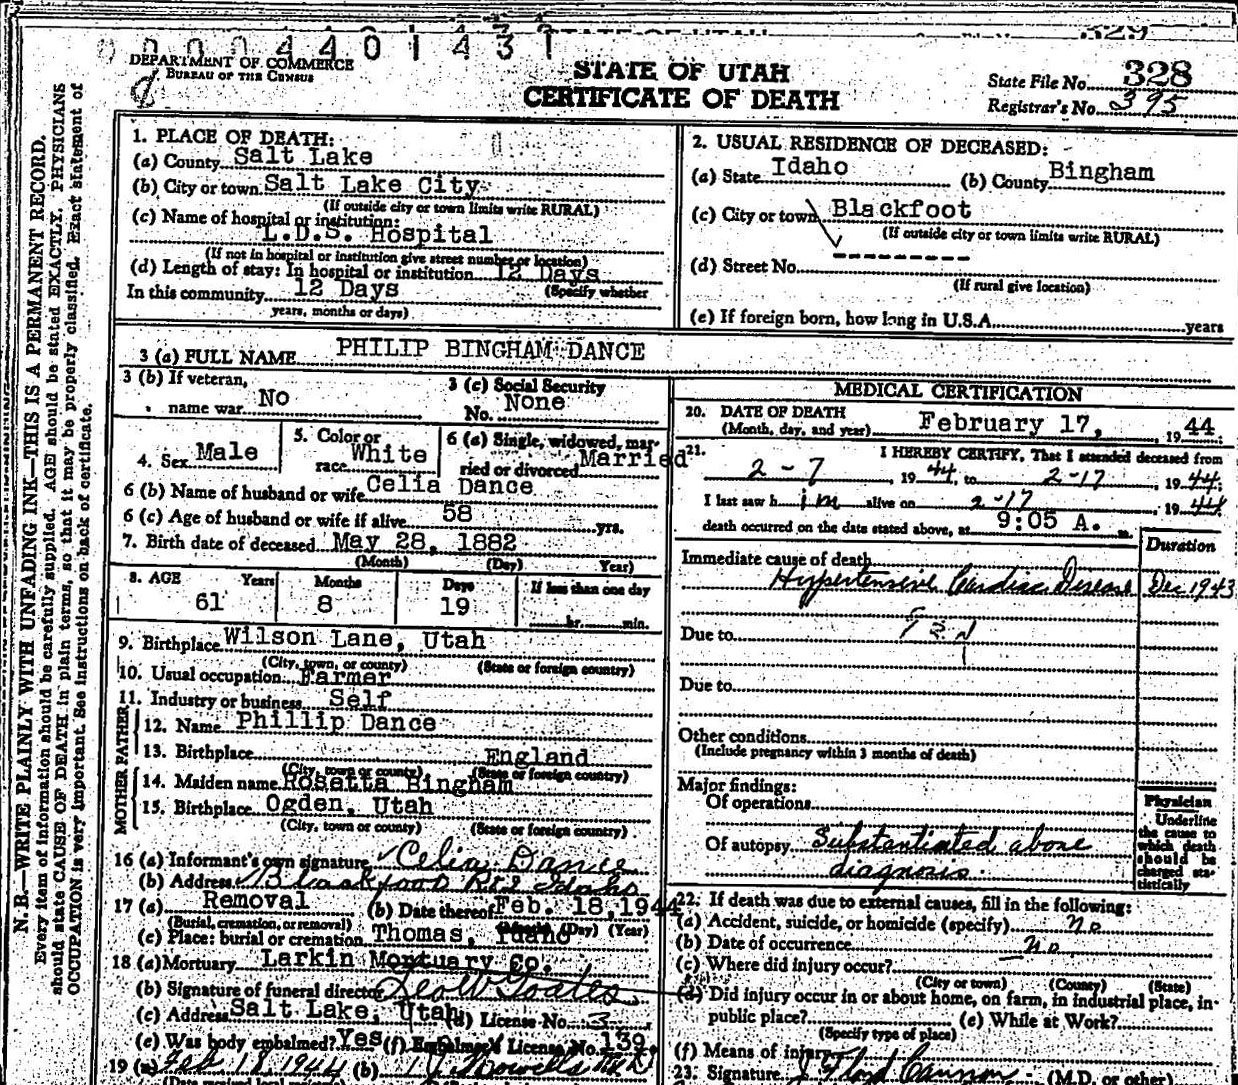 00004401431
STATE OF UTAH
329
DEPARTMENT OF COMMERCE
BUREAU OF THE CENSUS
STATE OF UTAH
CERTIFICATE OF DEATH
State File No. 328
Registrar's No. 395
N. B.—WRITE PLAINLY WITH UNFADING INK—THIS IS A PERMANENT RECORD.
Every item of information should be carefully supplied. AGE should be stated EXACTLY. PHYSICIANS
should state CAUSE OF DEATH in plain terms, so that it may be properly classified. Exact statement of
OCCUPATION is very important. See instructions on back of certificate.
1. PLACE OF DEATH:
(a) County Salt Lake
(b) City or town Salt Lake City
(If outside city or town limits write RURAL)
(c) Name of hospital or institution:
L.D.S. Hospital
(If not in hospital or institution give street number or location)
(d) Length of stay: In hospital or institution 12 Days
In this community 12 Days (Specify whether
years, months or days)
2. USUAL RESIDENCE OF DECEASED:
(a) State Idaho (b) County Bingham
(c) City or town Blackfoot
(If outside city or town limits write RURAL)
(d) Street No. ---------
(If rural give location)
(e) If foreign born, how long in U.S.A. years
3 (a) FULL NAME PHILIP BINGHAM DANCE
3 (b) If veteran, name war No
3 (c) Social Security No. None
4. Sex Male
5. Color or race White
6 (a) Single, widowed, married or divorced Married
6 (b) Name of husband or wife Celia Dance
6 (c) Age of husband or wife if alive 58 yrs.
7. Birth date of deceased May 28, 1882
(Month) (Day) Year)
8. AGE Years Months Days If less than one day
61 8 19 hr. min.
9. Birthplace Wilson Lane, Utah
(City, town, or county) (State or foreign country)
10. Usual occupation Farmer
11. Industry or business Self
FATHER
12. Name Phillip Dance
13. Birthplace England
(City, town or county) (State or foreign country)
MOTHER
14. Maiden name Rosetta Bingham
15. Birthplace Ogden, Utah
(City, town or county) (State or foreign country)
16 (a) Informant's own signature Celia Dance
(b) Address Blackfoot R#2 Idaho
17 (a) Removal (b) Date thereof Feb. 18, 1944
(Burial, cremation, or removal) (Month) (Day) (Year)
(c) Place: burial or cremation Thomas, Idaho
18 (a) Mortuary Larkin Mortuary Co.
(b) Signature of funeral director
(c) Address Salt Lake, Utah (d) License No. 3
(e) Was body embalmed? Yes (f) Embalmer's License No. 139
19 (a) Feb 18, 1944 (b)
(Date received local
MEDICAL CERTIFICATION
20. DATE OF DEATH
(Month, day, and year) February 17, 1944
21. I HEREBY CERTIFY, That I attended deceased from
2-7, 1944, to 2-17, 1944;
I last saw him alive on 2-17, 1944
death occurred on the date stated above, at 9:05 A. m.
Duration
Immediate cause of death
Hypertensive Cardiac Disease Dec 1943
Due to
Due to
Other conditions
(Include pregnancy within 3 months of death)
Major findings:
Of operations
Of autopsy Substantiated above
diagnosis.
Physician
Underline
the cause to
which death
should be
charged sta-
tistically
22. If death was due to external causes, fill in the following:
(a) Accident, suicide, or homicide (specify) no
(b) Date of occurrence no
(c) Where did injury occur?
(City or town) (County) (State)
(d) Did injury occur in or about home, on farm, in industrial place, in
public place? (e) While at Work?
(Specify type of place)
(f) Means of injury
23. Signature J Floyd Cannon (M.D. or other)